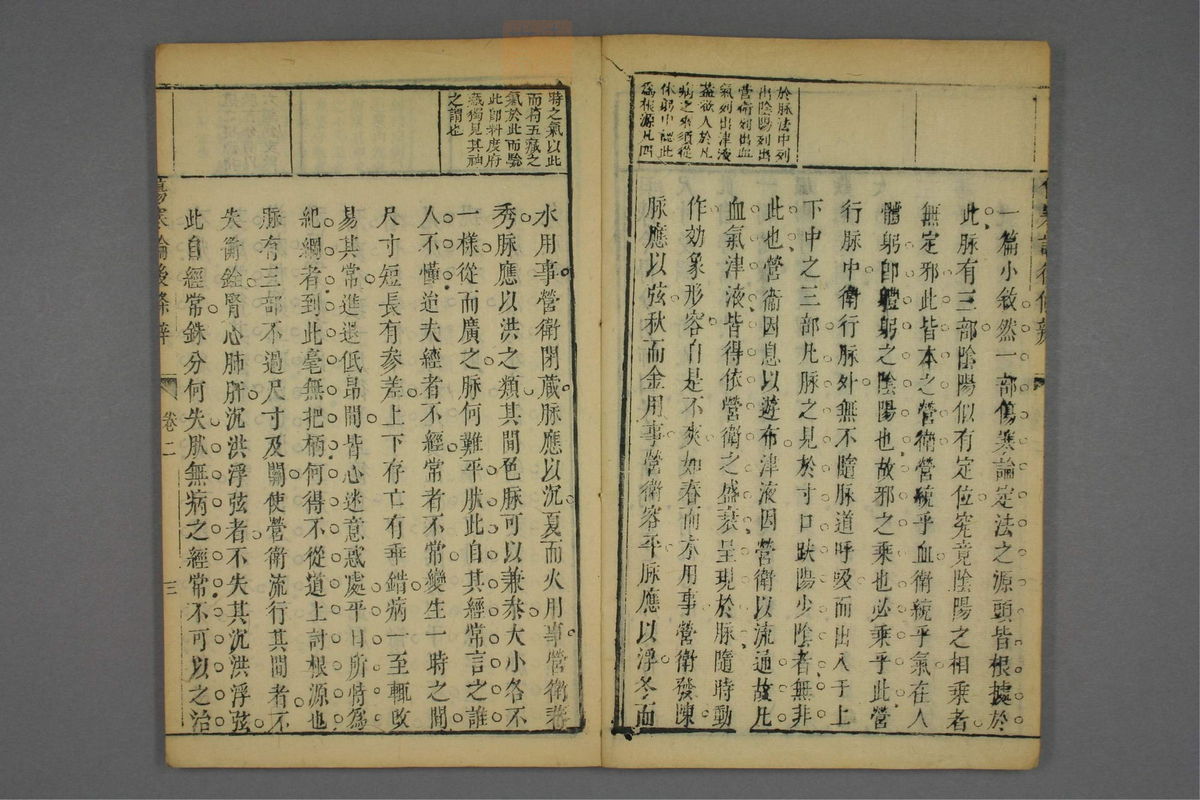 於脉法中列
出陰陽列出
營衛列出血
氣列出津液
蓋欲人於凡
病之來須從
体躬中認此
為根源凡四
一篇小敘然一部傷寒論定法之源頭皆根據於
此脉有三部陰陽似有定位究竟陰陽之相乘者
無定邪此皆本之營衛營統乎血衛統乎氣在人
體躬卽體躬之陰陽也故邪之乘也必乘乎此營
行脉中衛行脉外無不隨脉道呼吸而出入于上
下中之三部凡脉之見於寸口趺陽少陰者無非
此也營衛因息以遊布津液因營衛以流通故凡
血氣津液皆得依營衛之盛衰呈現於脉隨時動
作効象形容自是不爽如春而木用事營衛發陳
脉應以弦秋而金用事營衛容平脉應以浮冬而
時之氣以此
而將五臟之
氣於此而驗
此卽料度府
藏獨見其神
之謂也
水用事營衛閉藏脉應以沉夏而火用事營衛蕃
秀脉應以洪之類其間色脉可以兼叅大小各不
一樣從而廣之脉何難平肰此自其經常言之誰
人不懂迨夫經者不經常者不常變生一時之間
尺寸短長有參差上下存亡有乖錯病一至輒改
易其常進退低昂間皆心迷意惑處平日所恃為
紀綱者到此毫無把柄何得不從道上討根源也
脉有三部不過尺寸及關使營衛流行其間者不
失衡銓腎心肺肝沉洪浮弦者不失其沉洪浮弦
此自經常銖分何失肰無病之經常不可以之治
傷寒論後條辨
卷二
三